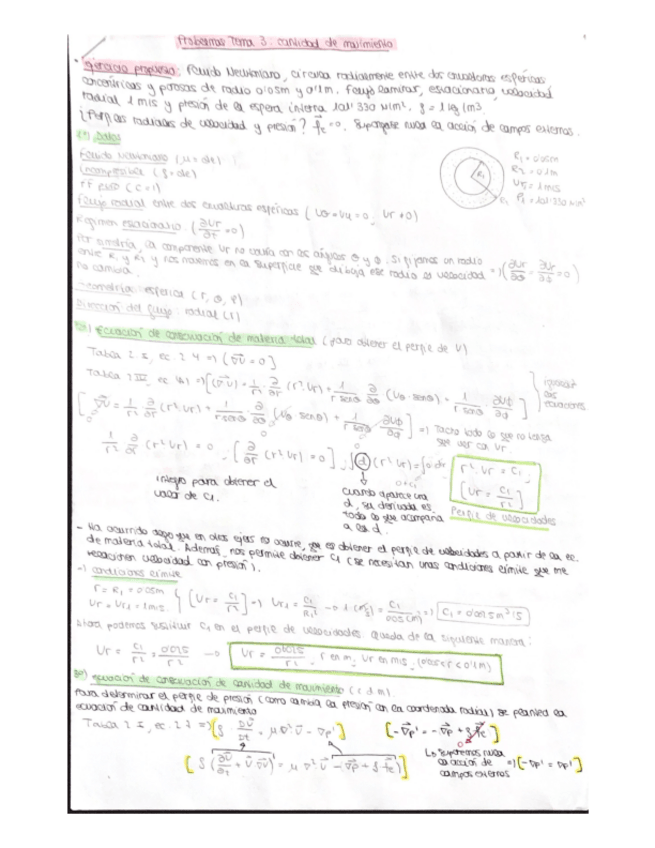 Problemas Tema 3: cantidad de movimiento
Ejercicio propuesto: Fluido Newtoniano, circula radialmente entre dos cuadraturas esféricas
concéntricas y porosas de radio 0'05m y 0'1m. Flujo laminar, estacionario, velocidad
radial 1 m/s y presión de la esfera interna 101'330 N/m², ρ = 1 kg/m³.
¿Perfiles radiales de velocidad y presión? fe = 0. Supongase nula la acción de campos externos.
1º) Datos
Fluido Newtoniano (μ = cte)
Incompresible (ρ = cte)
FF puro (C = 1)
Flujo radial entre dos cuadraturas esféricas (Vθ = Vφ = 0, Vr ≠ 0)
Régimen estacionario (∂Vr/∂t = 0)
Por simetría, la componente Vr no varía con los ángulos θ y φ. Si fijamos un radio
entre R1 y R2 y nos movemos en la superficie que dibuja ese radio la velocidad => (∂Vr/∂θ = ∂Vr/∂φ = 0)
no cambia.
Geometría: esférica (r, θ, φ)
Dirección del flujo: radial (r)
R1 = 0'05m
R2 = 0.1m
Vr1 = 1 m/s
P1 = 101'330 N/m²
2º) Ecuación de conservación de materia total (para obtener el perfil de V)
Tabla 2.I, ec. 2.4 => (∇V = 0)
[∇V = 1/r² · ∂/∂r (r² · Vr) + 1/(r senθ) ∂/∂θ (Vθ · senθ) + 1/(r senθ) · ∂Vφ/∂φ] => Tacho todo lo que no tenga
que ver con Vr
igualar
las
ecuaciones
1/r² ∂/∂r (r² Vr) = 0 ; [∂/∂r (r² Vr) = 0] ; ∫d(r² Vr) = ∫0 dr
r² · Vr = C1
[Vr = C1/r²]
Perfil de velocidades
integro para obtener el
valor de C1.
Cuando aparece una
d, su derivada es
todo lo que acompaña
a la d.
- Ha ocurrido algo que en otros ejes no ocurre, que es obtener el perfil de velocidades a partir de la ec.
de materia total. Además, nos permite obtener C1 (se necesitan unas condiciones límite que me
relacionen velocidad con presión).
=> condiciones límite
r = R1 = 0'05m
Vr = Vr1 = 1m/s
{ [Vr = C1/r²] => Vr1 = C1/R1² -> 1 (m/s) = C1/0'05 (m) => C1 = 0'0025 m³/s
Ahora podemos sustituir C1 en el perfil de velocidades. Queda de la siguiente manera:
Vr = C1/r² = 0'0025/r² -> Vr = 0'0025/r², r en m, Vr en m/s, (0'05 ≤ r ≤ 0'1m)
3º) Ecuación de conservación de cantidad de movimiento (c.d.m)
Para determinar el perfil de presión (como cambia la presión con la coordenada radial) se plantea la
ecuación de cantidad de movimiento
Tabla 2.I, ec. 2.7 => [ρ · DV/Dt = μ ∇²V - ∇p'] [-∇p' = -∇p + ρ fe]
[ρ (∂V/∂t + V · ∇V) = μ ∇²V - ∇p + ρ · fe]
Lo suponemos nula
la acción de => [-∇p' = ∇p']
campos externos